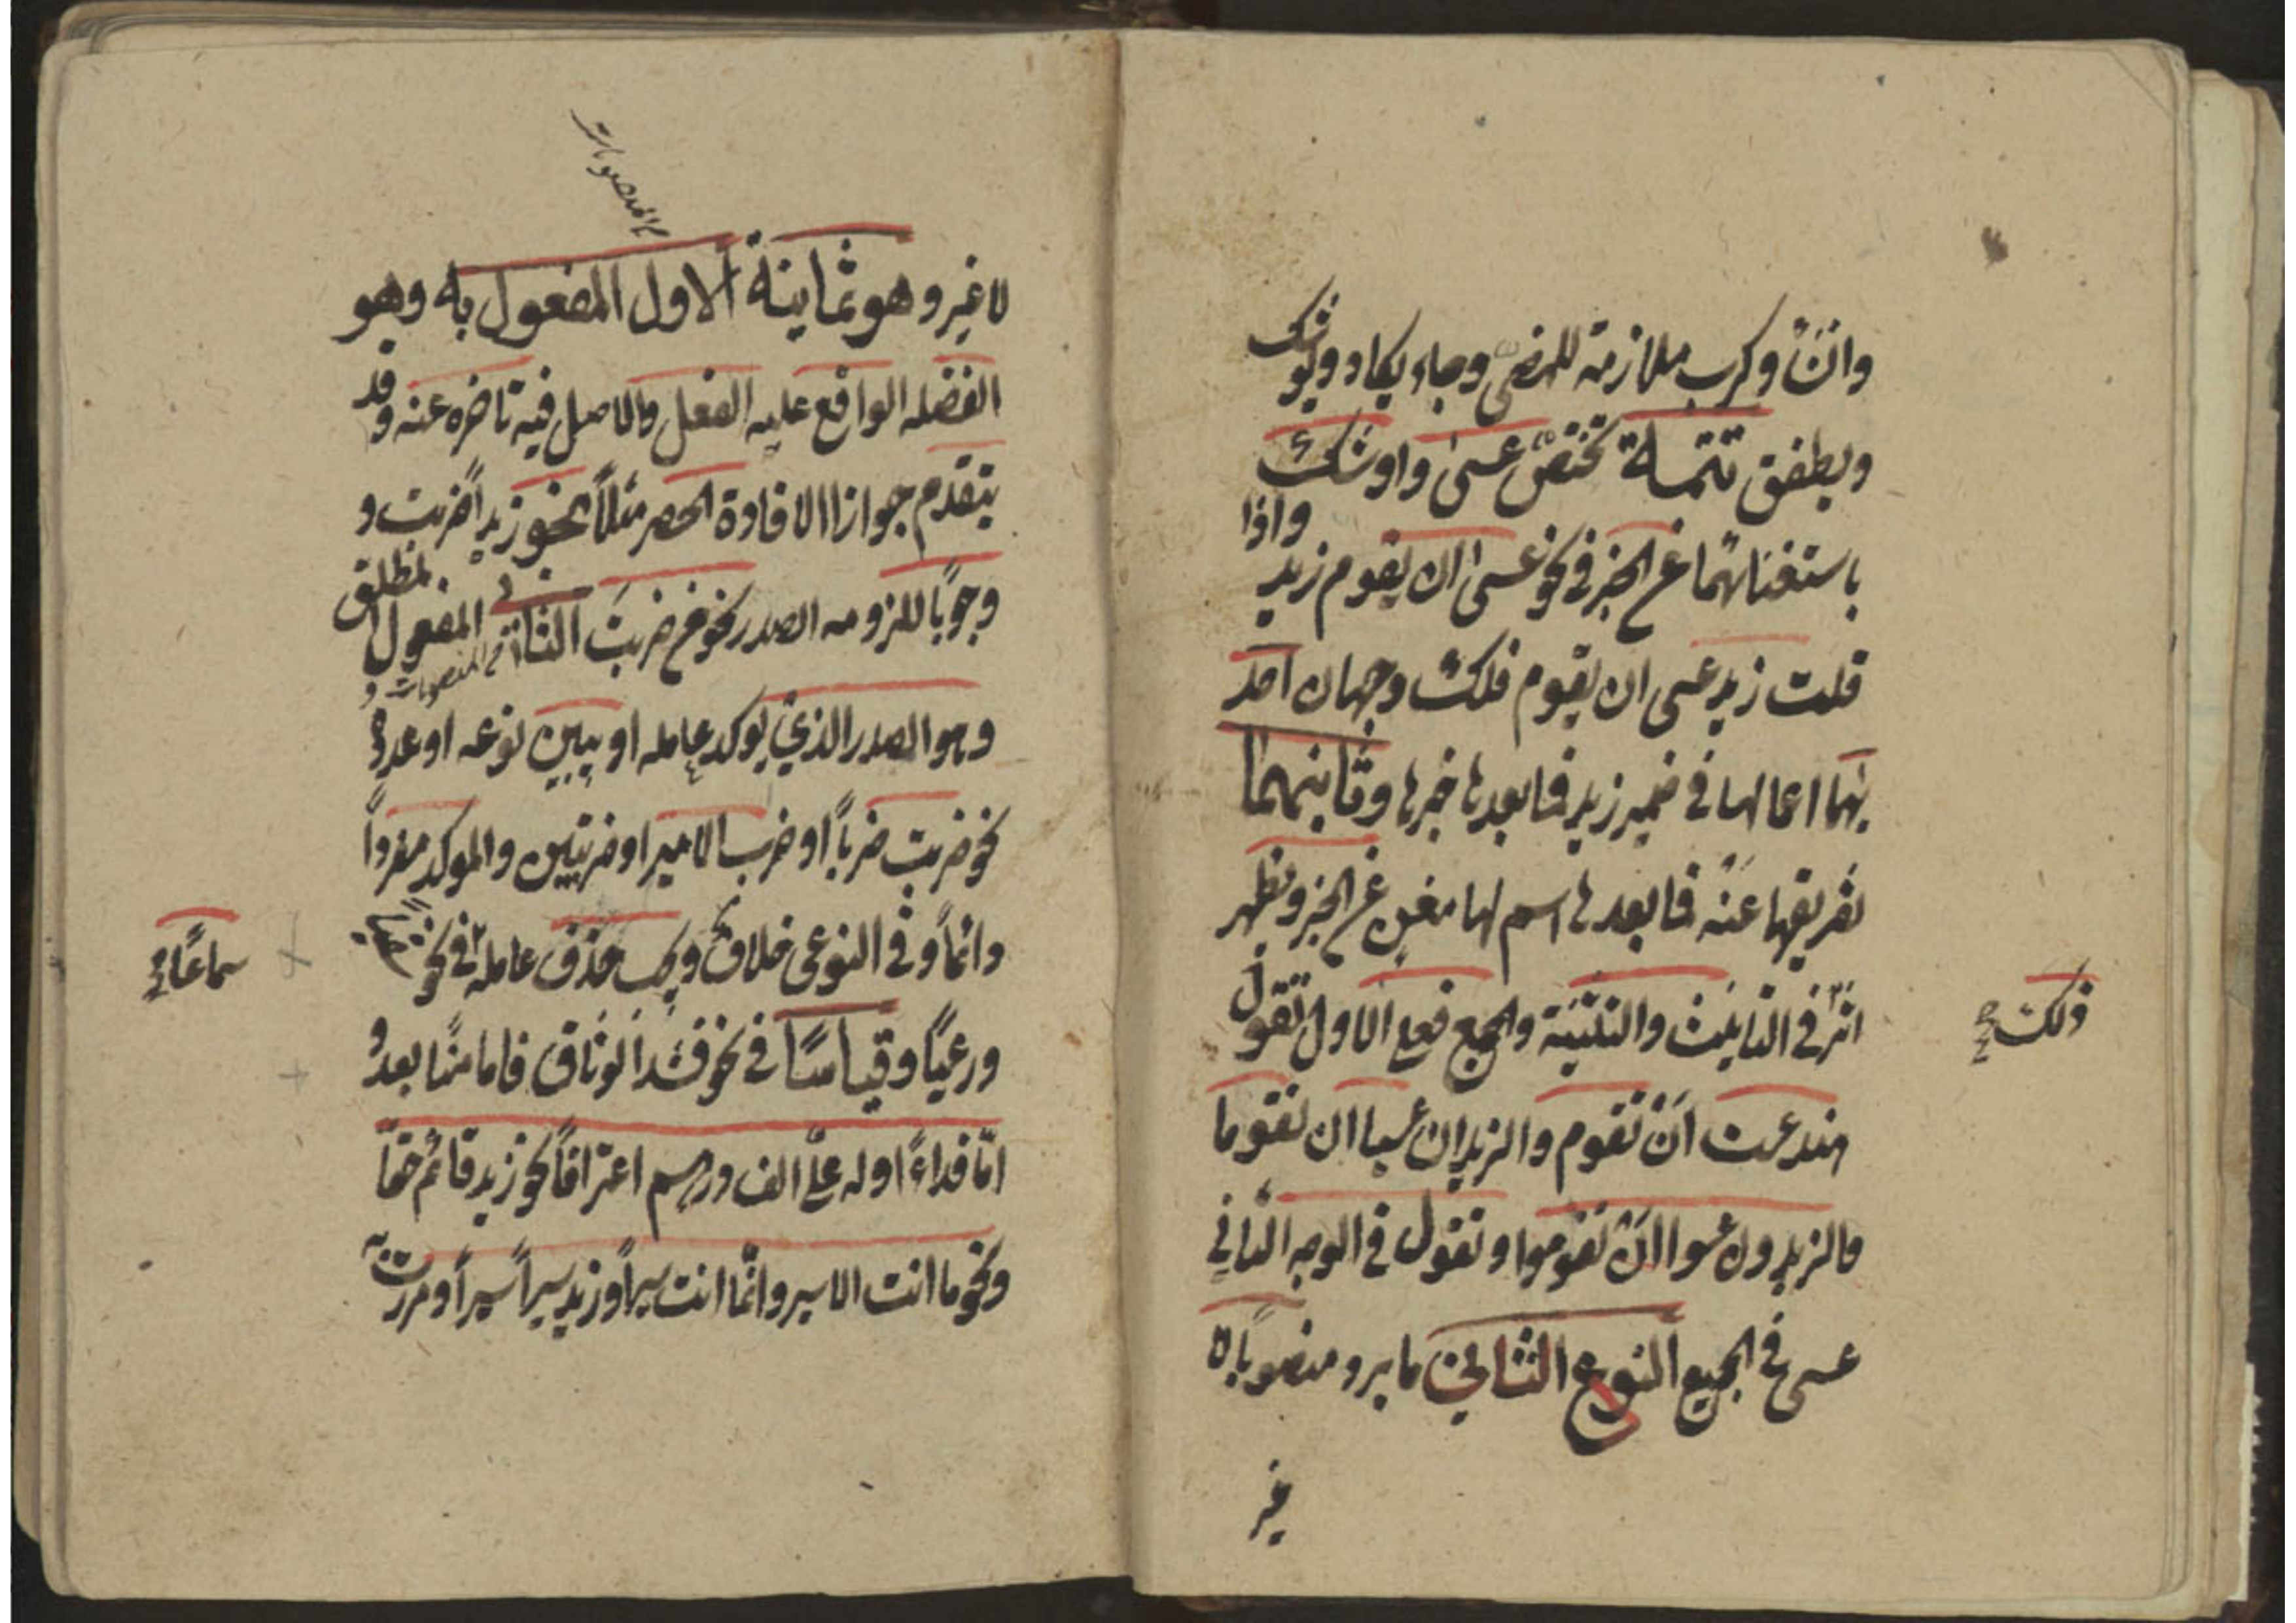 وانشأ وكرب ملازمة للمضى وجاء يكاد ويوشك
ويطفق تتمة تختص عسى واوشك
باستغنائهما عن الخبر فى نحو عسى ان يقوم زيد واذا
قلت زيد عسى ان يقوم فلك وجهان احد
يهما اعمالها فى ضمير زيد فما بعدها خبرها وثانيهما
تفريغها عنه فما بعدها اسم لها مغن عن الخبر ويظهر
اثر فى التانيث والتثنية والجمع فعلى الاول تقول
ذلك صح
هند عست ان تقوم والزيدان عسيا ان يقوما
والزيدون عسوا ان يقوموا وتقول فى الوجه الثانى
عسى فى الجميع النوع الثانى ما يرد منصوبا لا
غير
المنصوبات
لا غير وهو ثمانية الاول المفعول به وهو
الفضله الواقع عليه الفعل والاصل فيه تاخره عنه وقد
يتقدم جوازا لافادة الحصر مثلا نحو زيدا ضربت و
وجوبا للزومه الصدر نحو من ضربت الثانى المفعول المطلق
من المنصوبات
وهو المصدر الذى يوكد عامله او يبين نوعه او عدده
نحو ضربت ضربا او ضرب الامير او ضربتين والموكد مفردا
دائما وفى النوعى خلاف ويجب حذف عامله فى نحو سقيا
سماعا صح
ورعيا وقياسا فى نحو فشدوا الوثاق فاما منا بعد و
اما فداء او له على الف درهم اعترافا نحو زيد قائم حقا
ونحو ما انت الا سير وانما انت سيرا وزيد سيرا سيرا ومررت به